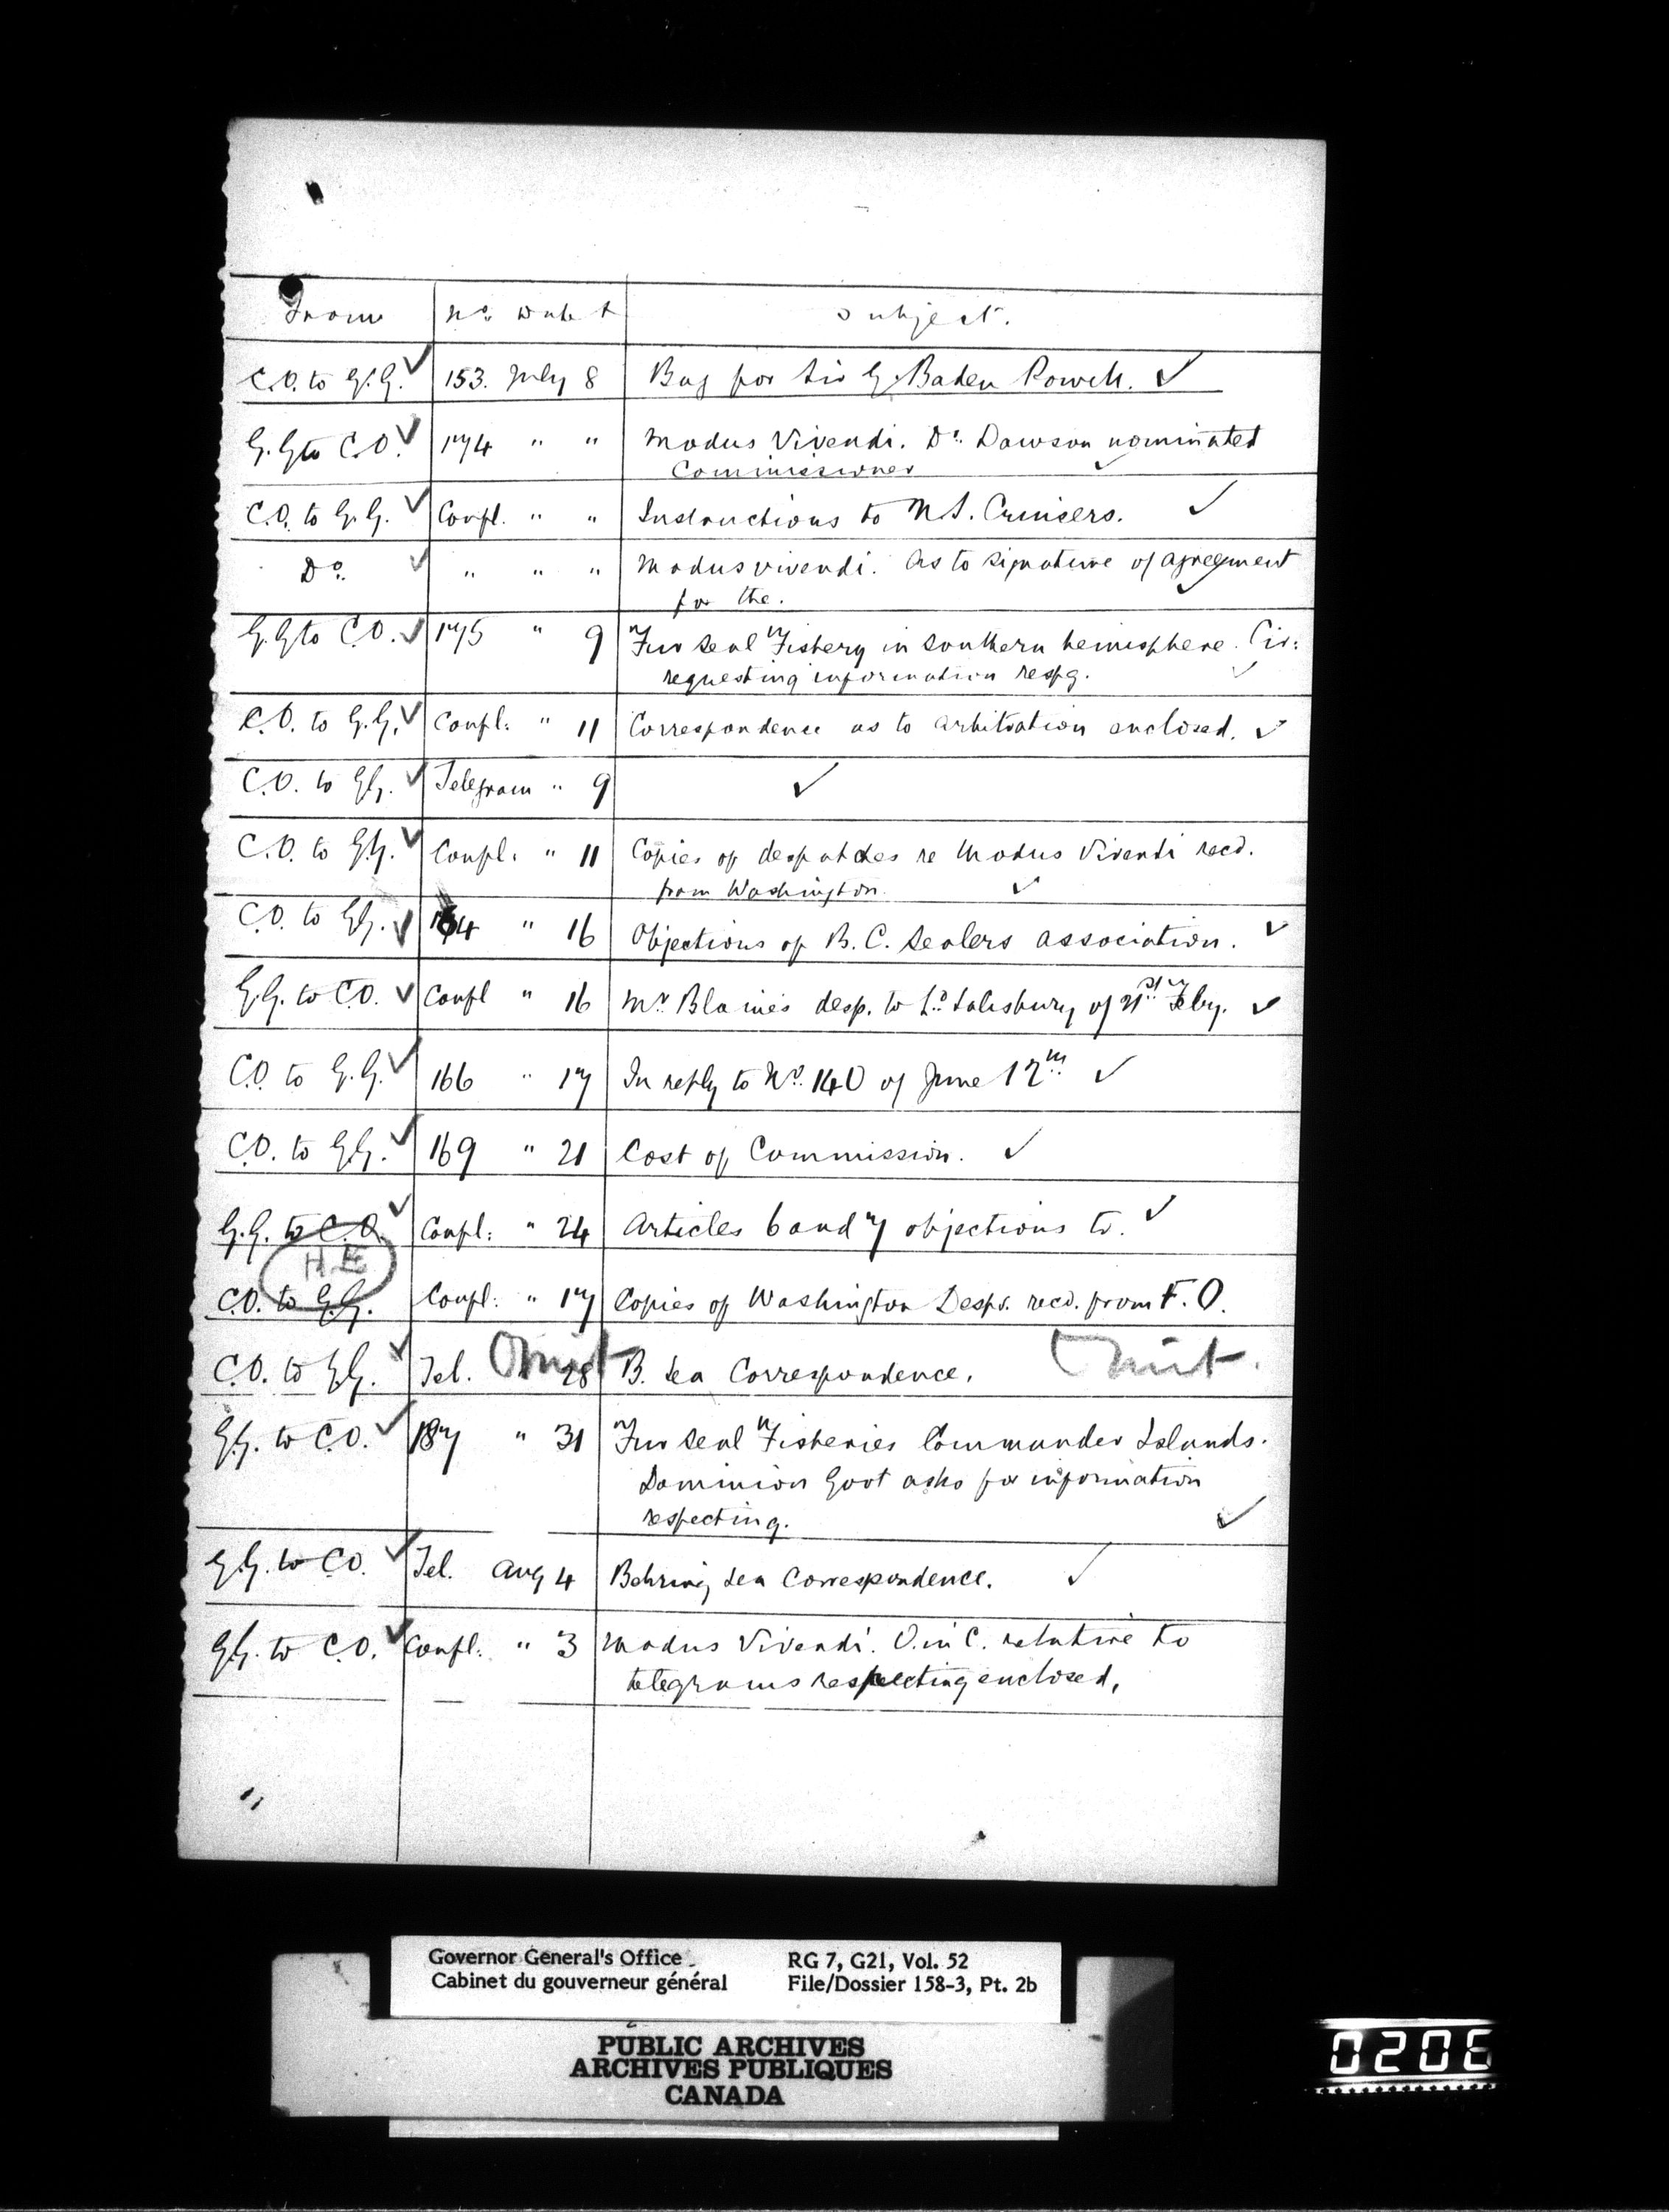 From No. & Date Subject.
C.O. to G.G. ✓ 153. July 8 Bag for Sir G. Baden Powell. ✓
G.G. to C.O. ✓ 174 " " Modus Vivendi. Dr. Dawson nominated
Commissioner ✓
C.O. to G.G. ✓ Confl. " " Instructions to N.S. Cruisers. ✓
Do. ✓ " " " Modus vivendi. As to signature of agreement
for the. ✓
G.G. to C.O. ✓ 175 " 9 Fur Seal Fishery in Southern hemisphere. Cir:
requesting information respg. ✓
C.O. to G.G. ✓ Confl: " 11 Correspondence as to Arbitration enclosed. ✓
C.O. to G.G. ✓ Telegram " 9 ✓
C.O. to G.G. ✓ Confl: " 11 Copies of despatches re Modus Vivendi recd.
from Washington. ✓
C.O. to G.G. ✓ 164 " 16 Objections of B.C. Sealers association. ✓
G.G. to C.O. ✓ Confl " 16 Mr. Blaine's desp. to Ld. Salisbury of 21st Feby. ✓
C.O. to G.G. ✓ 166 " 17 In reply to No. 140 of June 12th ✓
C.O. to G.G. ✓ 169 " 21 Cost of Commission. ✓
G.G. to C.O. ✓ Confl: " 24 Articles 6 and 7 objections to. ✓
H.E
C.O. to G.G. Confl: " 17 Copies of Washington Desps. recd. from F.O.
Omit Omit.
C.O. to G.G. ✓ Tel. " 28 B. Sea Correspondence.
G.G. to C.O. ✓ 187 " 31 Fur Seal Fisheries Commander Islands.
Dominion Govt asks for information
respecting. ✓
G.G. to C.O. ✓ Tel. Aug 4 Behring Sea Correspondence. ✓
G.G. to C.O. ✓ Confl: " 3 Modus Vivendi. O. in C. relative to
telegrams respecting enclosed.
Governor General's Office RG 7, G21, Vol. 52
Cabinet du gouverneur général File/Dossier 158-3, Pt. 2b
PUBLIC ARCHIVES
ARCHIVES PUBLIQUES
CANADA
0206